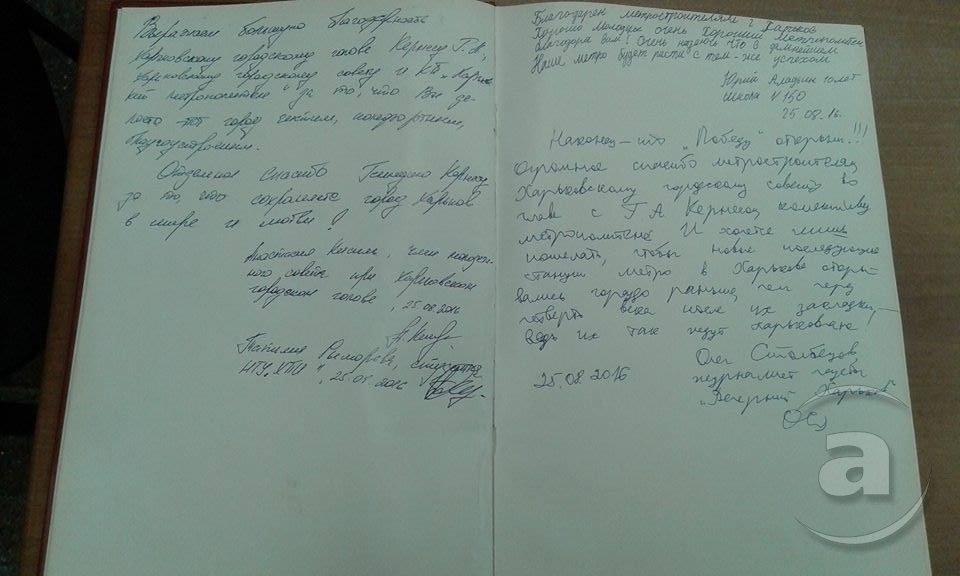 Выражаем большую благодарность
Харьковскому городскому голове Кернесу Г.А,
харьковскому городскому совету и КП „Харьков
кий метрополитен" за то, что Вы де-
лаете город чистым, комфортным,
благоустроенным.
Отдельное спасибо Геннадию Кернесу
за то, что сохраняете город Харьков
в мире и любви!
Анастасия член молодеж
ного совета при Харьковском
городском голове, 25.08.2016
Наталия студентка
НТУ „ХПИ", 25.08.2016
Благодарен метростроителям г. Харьков
молодцы очень хороший Метрополитен
благодарю вам! Очень надеюсь что в дальнейшем
Наше метро будет расти с тем-же успехом
Юрий 10 лет
школа №150
25.08.16.
Наконец-то „Победу" открыли!!!
Огромное спасибо метростроителям,
Харьковскому городскому совету во
главе с Г.А Кернесом, коллективу
метрополитена. И хочется лишь
пожелать, чтобы новые последующие
станции метро в Харькове откры-
вались гораздо раньше, чем через
четверть века после их закладки,—
ведь их так ждут харьковчане!
Олег Столбецов,
журналист газеты
„Вечерний Харьков"
25.08.2016
a